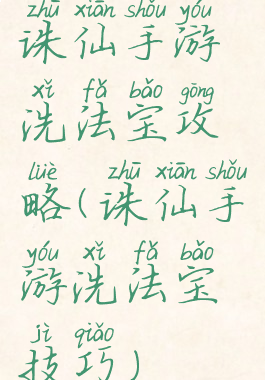 zhū xiān shǒu yóu
诛仙手游
xǐ fǎ bǎo gōng
洗法宝攻
lüè zhū xiān shǒu
略(诛仙手
yóu xǐ fǎ bǎo
游洗法宝
jì qiǎo
技巧)